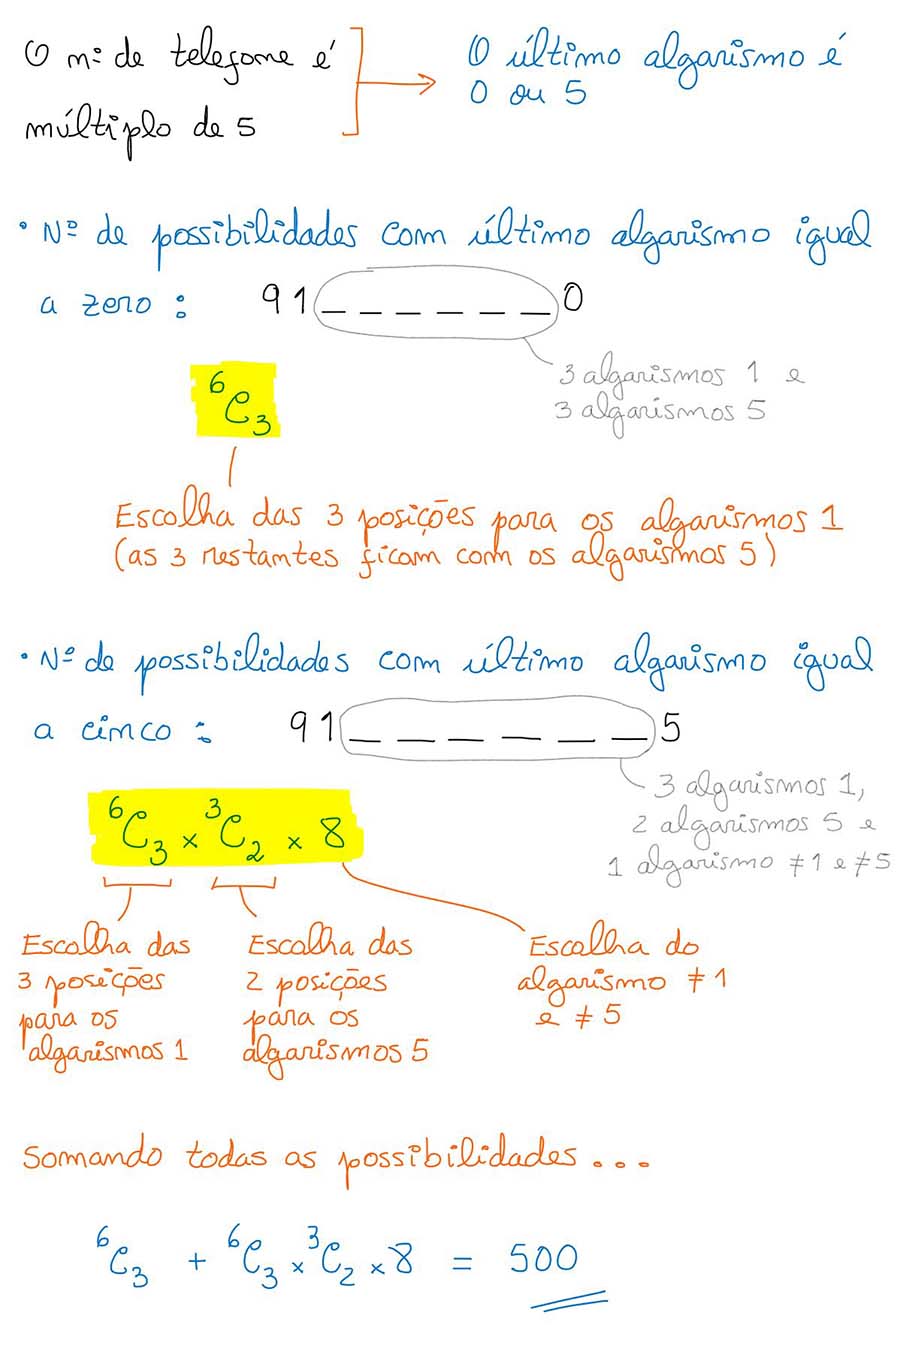 O nº de telefone é
múltiplo de 5
O último algarismo é
0 ou 5
• Nº de possibilidades com último algarismo igual
a zero : 91 _ _ _ _ _ _ 0
3 algarismos 1 e
3 algarismos 5
⁶C₃
Escolha das 3 posições para os algarismos 1
(as 3 restantes ficam com os algarismos 5)
• Nº de possibilidades com último algarismo igual
a cinco : 91 _ _ _ _ _ _ 5
3 algarismos 1,
2 algarismos 5 e
1 algarismo ≠1 e ≠5
⁶C₃ × ³C₂ × 8
Escolha das
3 posições
para os
algarismos 1
Escolha das
2 posições
para os
algarismos 5
Escolha do
algarismo ≠1
e ≠5
Somando todas as possibilidades...
⁶C₃ + ⁶C₃ × ³C₂ × 8 = 500